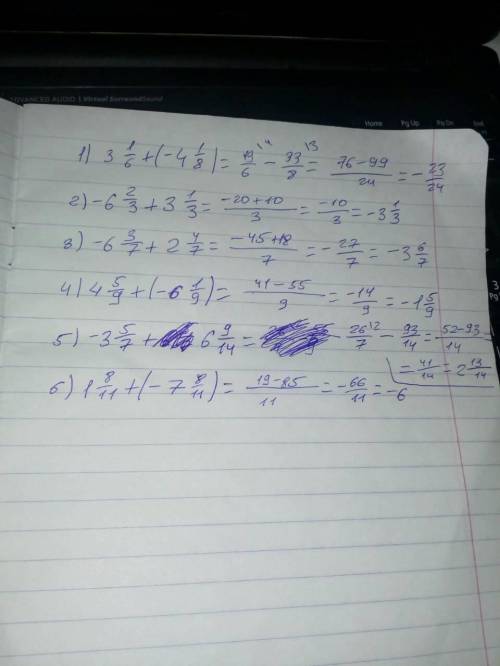 ADVANCED AUDIO | Virtual SurroundSound
Home Pg Up Pg Dn End
1) 3 1/6 + (-4 1/8) = 19/6 \4 - 33/8 \3 = 76-99/24 = - 23/24
2) -6 2/3 + 3 1/3 = -20+10/3 = -10/3 = -3 1/3
3) -6 3/7 + 2 4/7 = -45+18/7 = - 27/7 = -3 6/7
4) 4 5/9 + (-6 1/9) = 41-55/9 = -14/9 = -1 5/9
5) -3 5/7 + 6 9/14 = - 26/7 \2 - 93/14 = 52-93/14
= 41/14 = 2 13/14
6) 1 8/11 + (-7 8/11) = 19-85/11 = -66/11 = -6